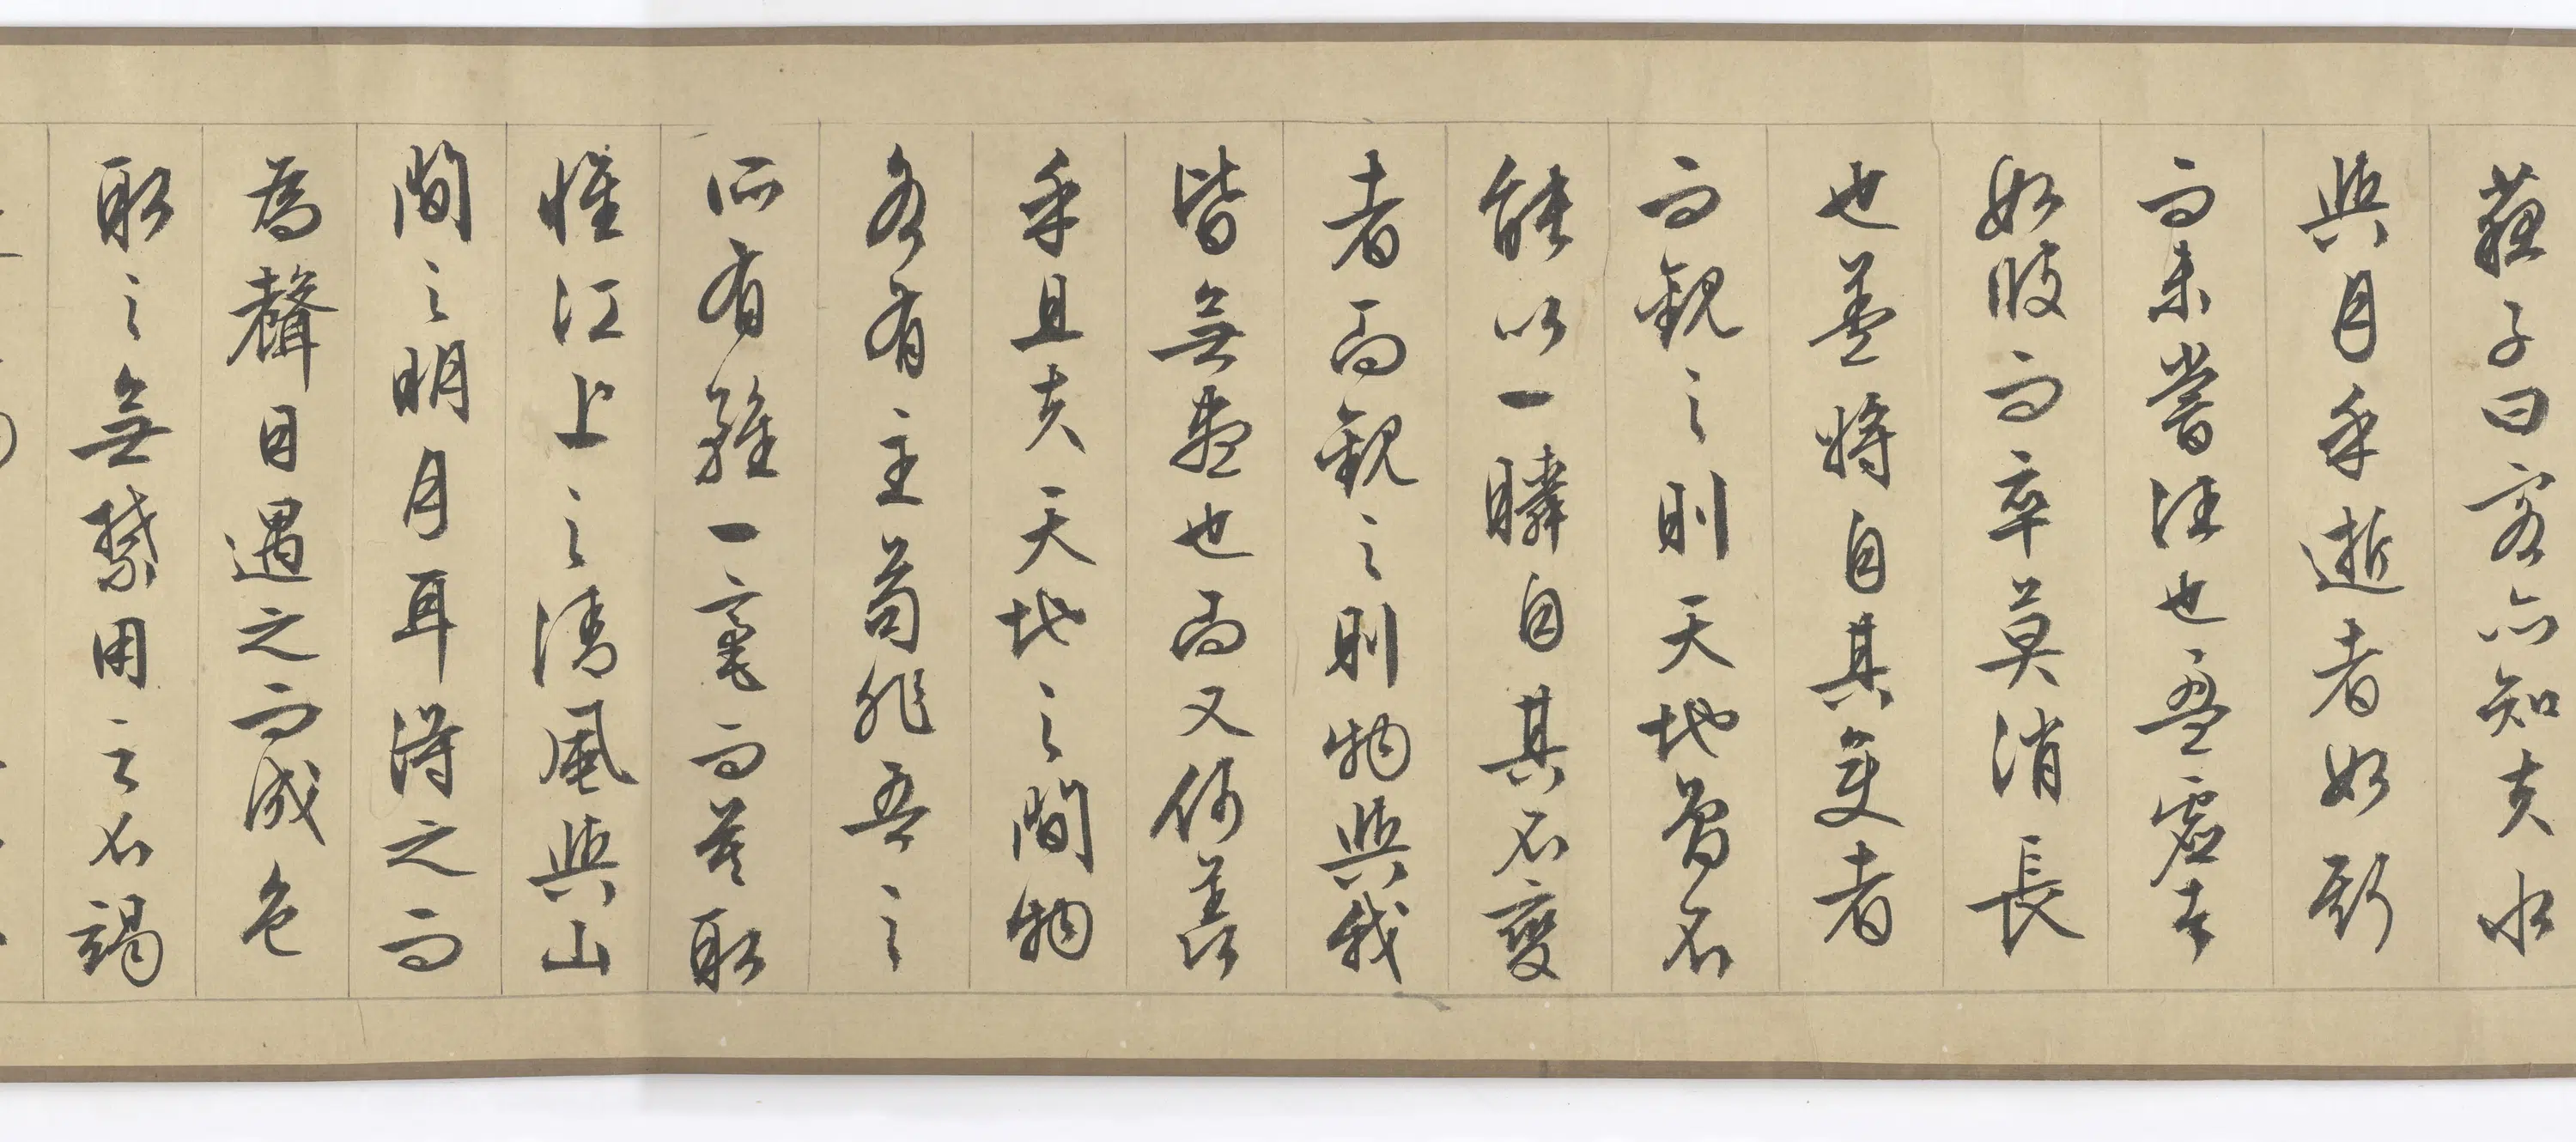 蘇子曰客亦知夫水
與月乎逝者如斯
而未嘗往也盈虛者
如彼而卒莫消長
也蓋將自其變者
而觀之則天地曾不
能以一瞬自其不變
者而觀之則物與我
皆無盡也而又何羨
乎且夫天地之間物
各有主苟非吾之
所有雖一毫而莫取
惟江上之清風與山
間之明月耳得之而
為聲目遇之而成色
取之無禁用之不竭